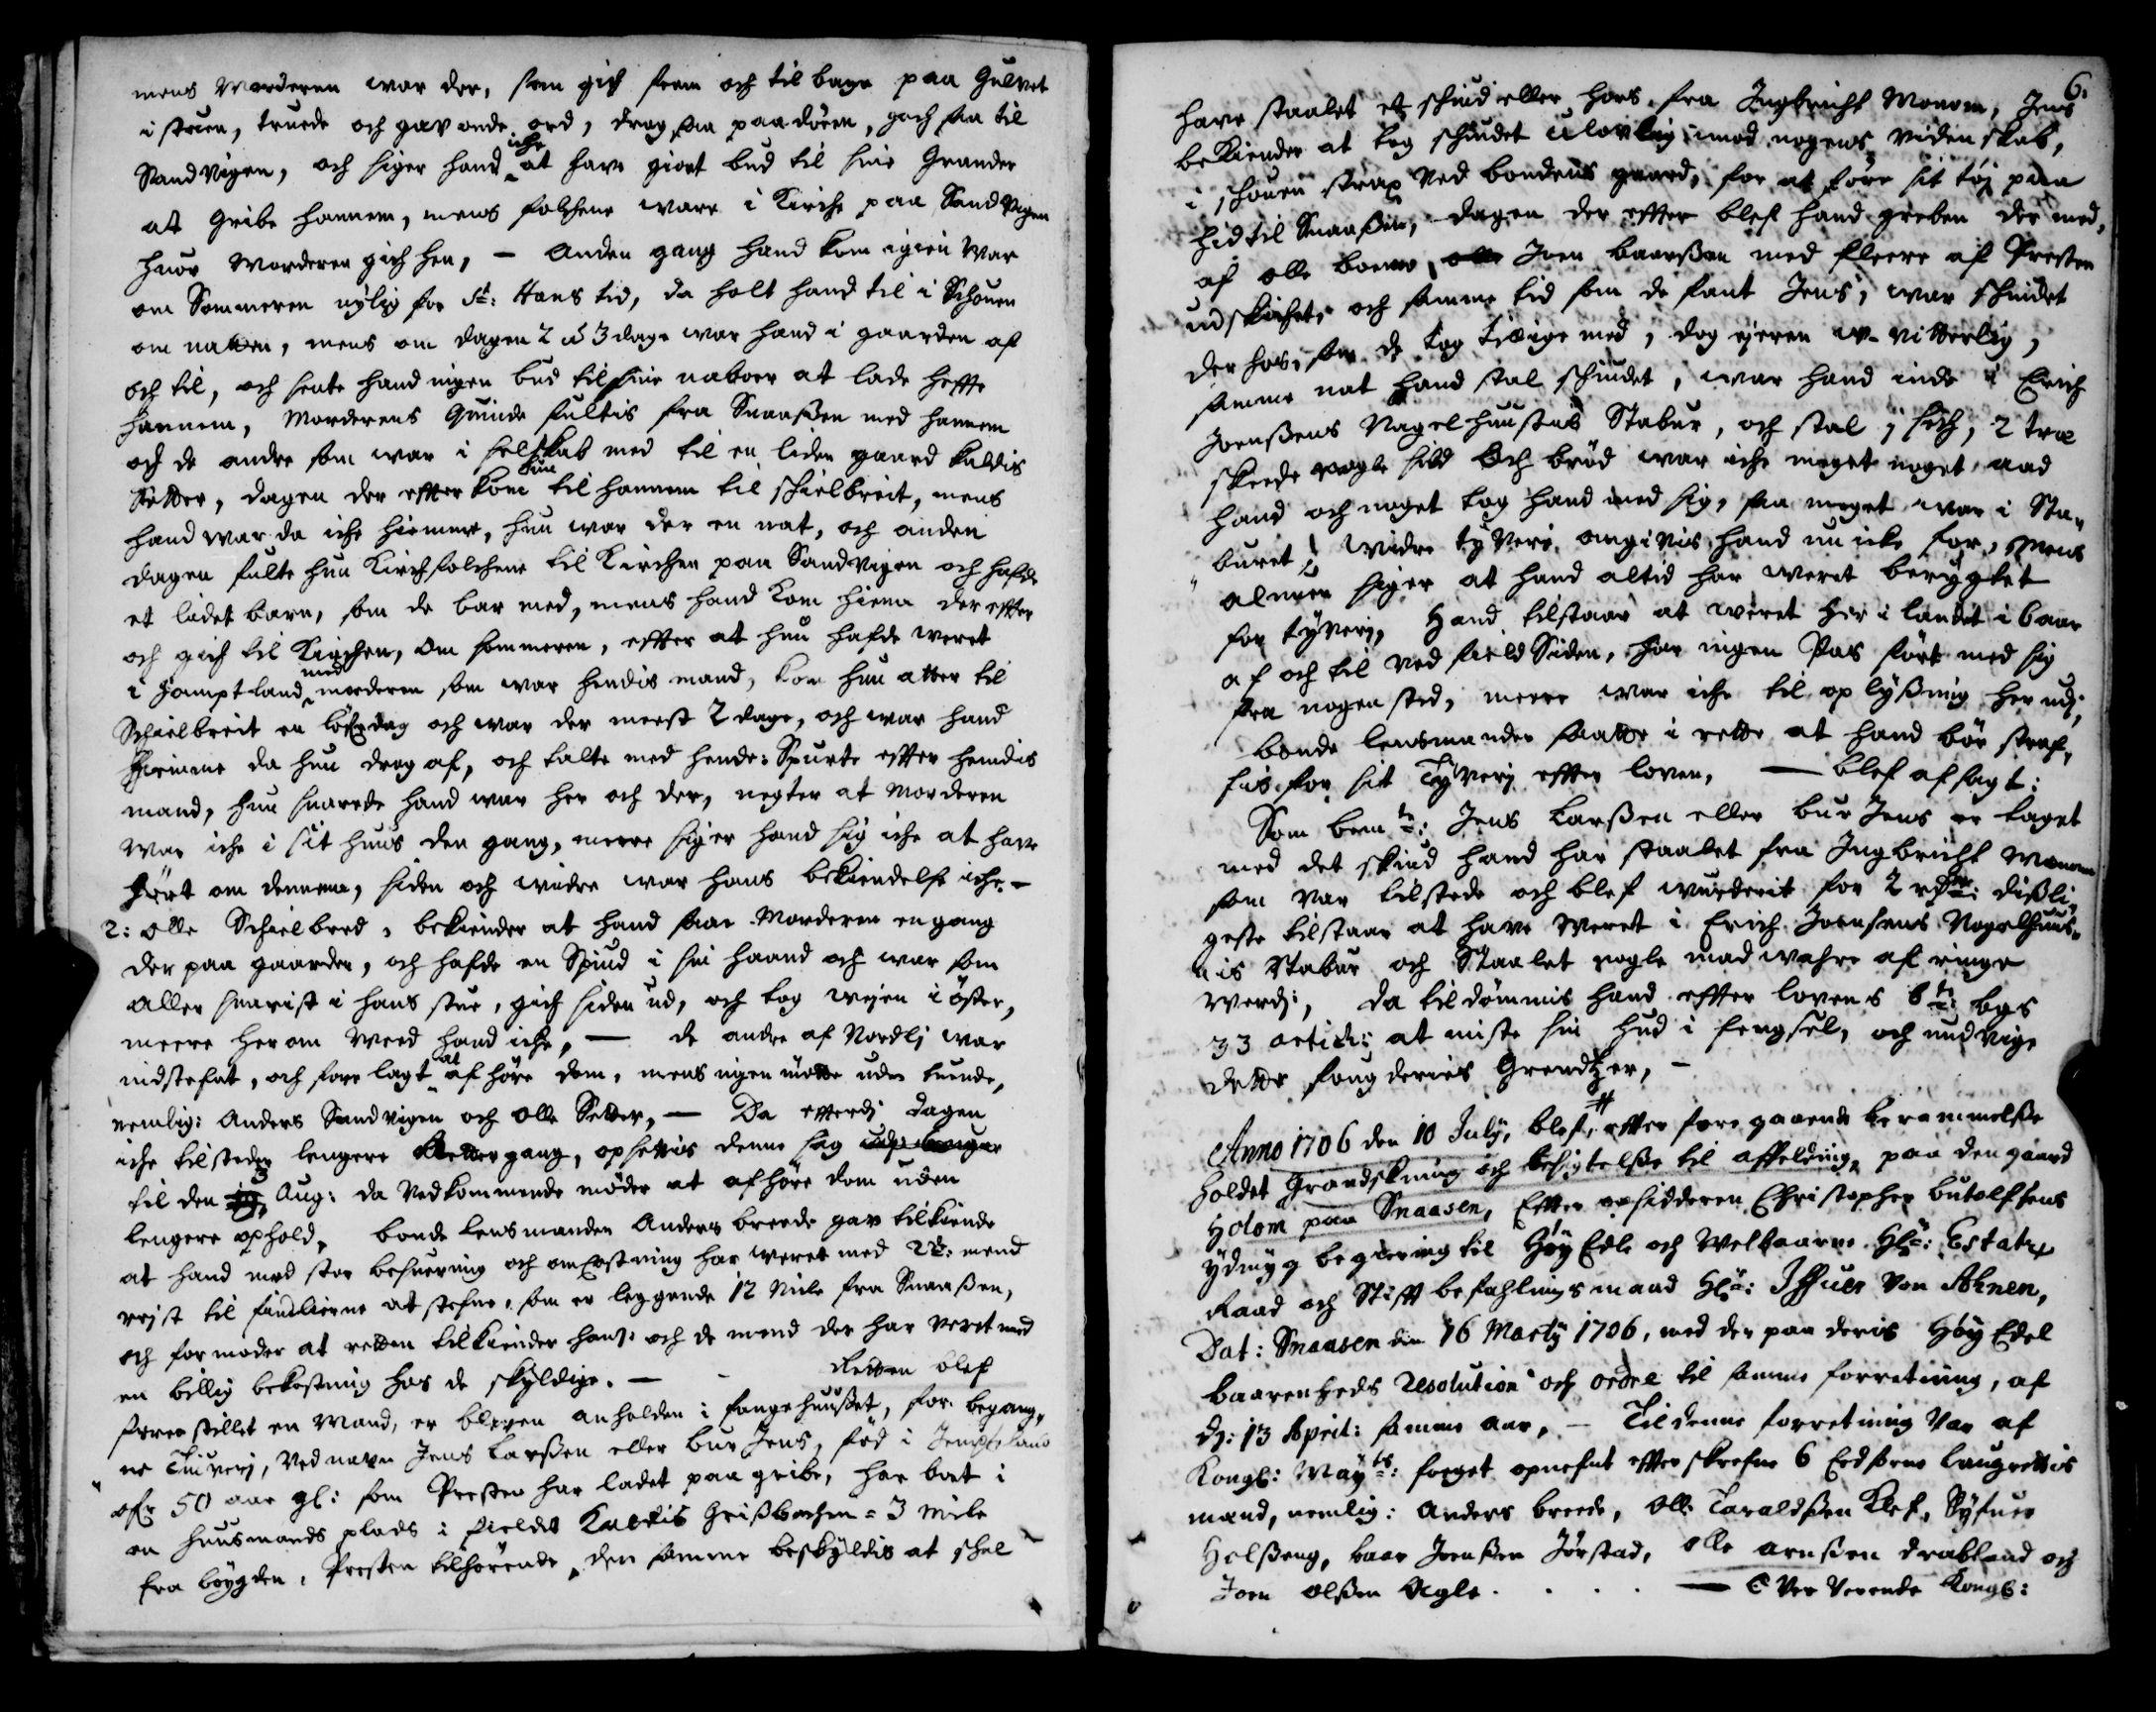 mens Morderen war der, som gich frem och tilbage paa Gulvet
i stuen, truede och gav onde ord, drog saa paa dören, gich saa til
Sandvigen, och siger hand iche at have giort bud til sine Grander
at Gribe hannem, mens folchene ware i Kirche paa Sandvigen
huor Morderen gich hen, - Anden gang hand kom igien war
om Sommeren nylig for St: Hans tid, da holt hand til i Schouen
om natten, mens om dagen 2 à 3 dage war hand i gaarden af
och til, och sente hand ingen bud til sine naboer at lade heffte
hannem, Morderens Quinde fultis fra Snaaßen med hannem
och de andre som war i selskab med til en liden gaard kaldis
Setter, dagen der effter kom hun til hannem til schielbreit, mens
hand war da iche hiemme, hun war der en nat, och anden
dagen fulte hun Kirchfolchene til Kirchen paa Sandvigen och hafde
et lidet barn, som de bar med, mens hand kom hiem der effter
och gich til Kirchen, Om sommeren, effter at hun hafde weret
i Jamptland med morderen som war hendis mand, kom hun atter til
Schielbreit en löfverdag och war der meest 2 dage, och war hand
hiemme da hun drog af, och talte med hende: Spurte effter hendis
mand, hun suarede hand war her och der, negter at Morderen
war iche i sit huus den gang, meere siger hand sig iche at have
hört om dennem, siden och widre war hans bekiendelse iche. -
2: Olle Schielbred, bekiender at hand saae Morderen en gang
der paa gaarden, och hafde en Spiud i sin haand och war som
aller snarist i hans stue, gich siden ud, och tog weyen i öster,
meere herom weed hand iche, - de andre af Nordlj war
indstefnt, och fore lagt at afhöre dom, mens ingen mötte uden tuende,
nemlig: Anders Sandvigen och Olle Setter, - Da efterdj dagen
iche tilsteder lengere Rettergang, opsettis denne sag
til den 3 Aug: da Vedkommende möder at afhöre dom uden
lengere ophold, bonde Lensmanden Anders breede gav tilkiende
at hand med stor besuering och omkostning har weret med 22: mend
reist til findlierne at stefne, som er leggende 12 Mile fra Snaaßen,
och formoder at retten tilkiender hans och de mend der har veret med
en billig bekostning hos de skyldige. - - Retten blef
foreestillet en Mand, er bleven anholden i fangehuußet, for begang,
ne Tiuverj, Ved navn Jens Larßen eller bur Jens, föd i Jempteland
ofr 50 aar gl: som Presten har ladet paagribe, har boet i
en huusmands plads i fieldet Kaldis Grißbachen = 3 Mile
fra böygden, Presten tilhörende, den samme beskyldis at skal
6.
have staalet et schind eller hors fra Ingbricht Monom, Jens
bekiender at tog schindet ulovlig imod nogens videnskab,
i schouen strax ved bondens gaard, for at före sit töj paa
hid til Snaaßen, dagen der effter blef hand greben der med,
af olle boens, Joen baarßen med fleere af Presten
udskichet, och samme tid som de fant Jens, war schindet
der hos, som de tog tillige med, dog ejeren u-vitterlig,
samme nat hand stal schindet, war hand inde i Erich
Joenßens Nagelhuustas Stabur, och stal j sech, 2 træ
skeede nogle sild och bröd war iche meget noget aad
hand och noget tog hand med sig, saa meget war i Sta-
buret, widre tyverj angivis hand nu icke for, Mens
almuen siger at hand altid har weret berygtet
for tyverj, Hand tilstaar at weret her i landet i 6 aar
af och til ved field Siden, har ingen Pas fört med sig
fra nogen sted, meere war iche til oplyßning her udj,
bonde lensmanden saatte i rette at hand bör straf,
fis for sit Tyverj effter loven, - blef afsagt:
Som bemte: Jens Larßen eller bur Jens er taget
med det skind hand har staalet fra Ingbricht Monom
som var tilstede och blef wurderit for 2 rdr: dißli-
geste tilstaar at have weret i Erich Joensens Nagelhuus-
tis Stabur och Staalet nogle madwahre af ringe
werdj, da tildömmis hand effter lovens 6te bogs
33 articl: at miste sin hud i fengsel, och undvige
dette fougderies Grendtzer, -
Anno 1706 den 10 July, blef, effter foregaaende berammelße
Holdet Grandskning och besigtelße til affelding, paa den gaard
Holom paa Snaasen, Effter opsidderen Christopher butolfsens
ydmyg begiering til Höy Edle och Welbaarne Hr: Estatz
Raad och Stift befahlings mand Hr: Iffuer von Ahnen,
Dat: Snaasen den 16 Marty 1706, med der paa deris Höy Edel
baarenheds resolution och ordre til samme forretning, af
dj: 13 April: samme aar, - Til denne forretning Var af
Kongl: Mayts: foeget opnefnt effterskrefne 6 Eedsorne laugrettis
mænd, nemlig: Anders breede, Olle Taraldßen Klef, Syfuer
Helßeng, baar Joenßen Jörstad, Olle arnßen drabland och
Joen olßen Agle. . . . - Over Verende Kongl: